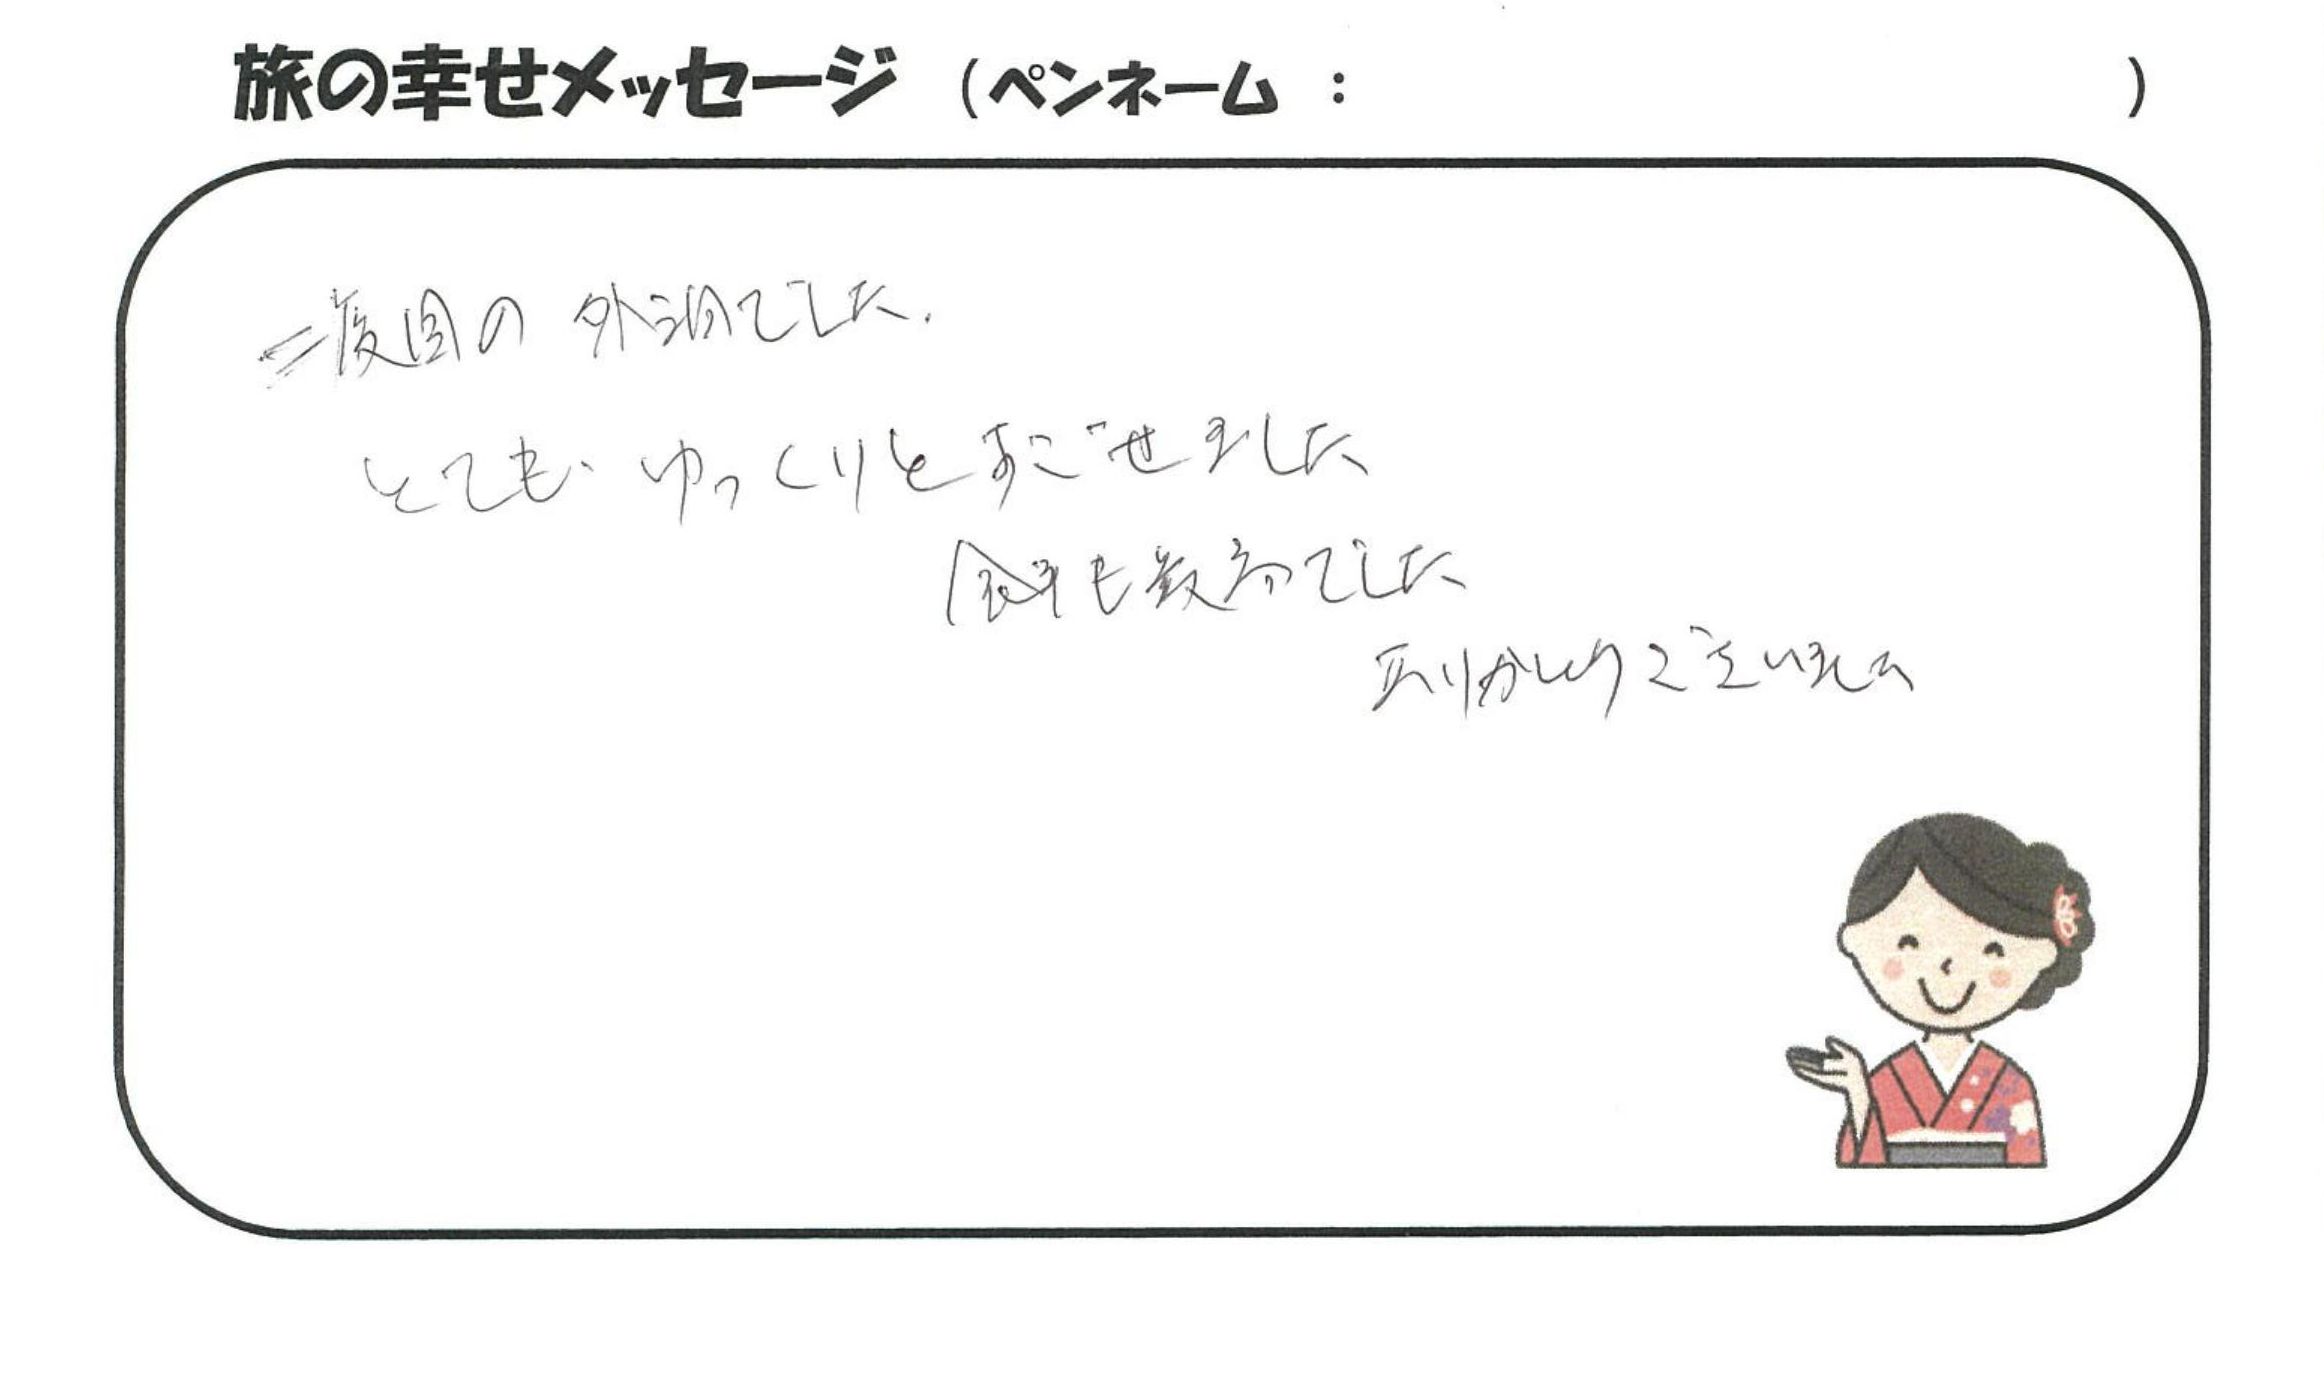 旅の幸せメッセージ (ペンネーム : )
二度目の 外泊でした.
とても ゆっくりとすごせました
食事も最高でした
ありがとうございました